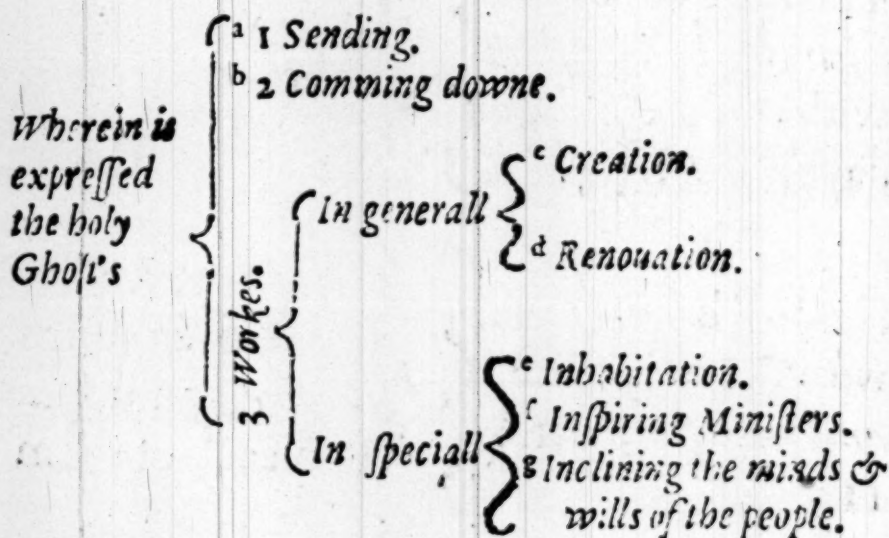 Wherein is
expreſſed
the holy
Ghoſt's
a 1 Sending.
b 2 Comming downe.
3 Workes.
In generall
c Creation.
d Renouation.
In ſpeciall
e Inhabitation.
f Inſpiring Miniſters.
g Inclining the minds &
wills of the people.